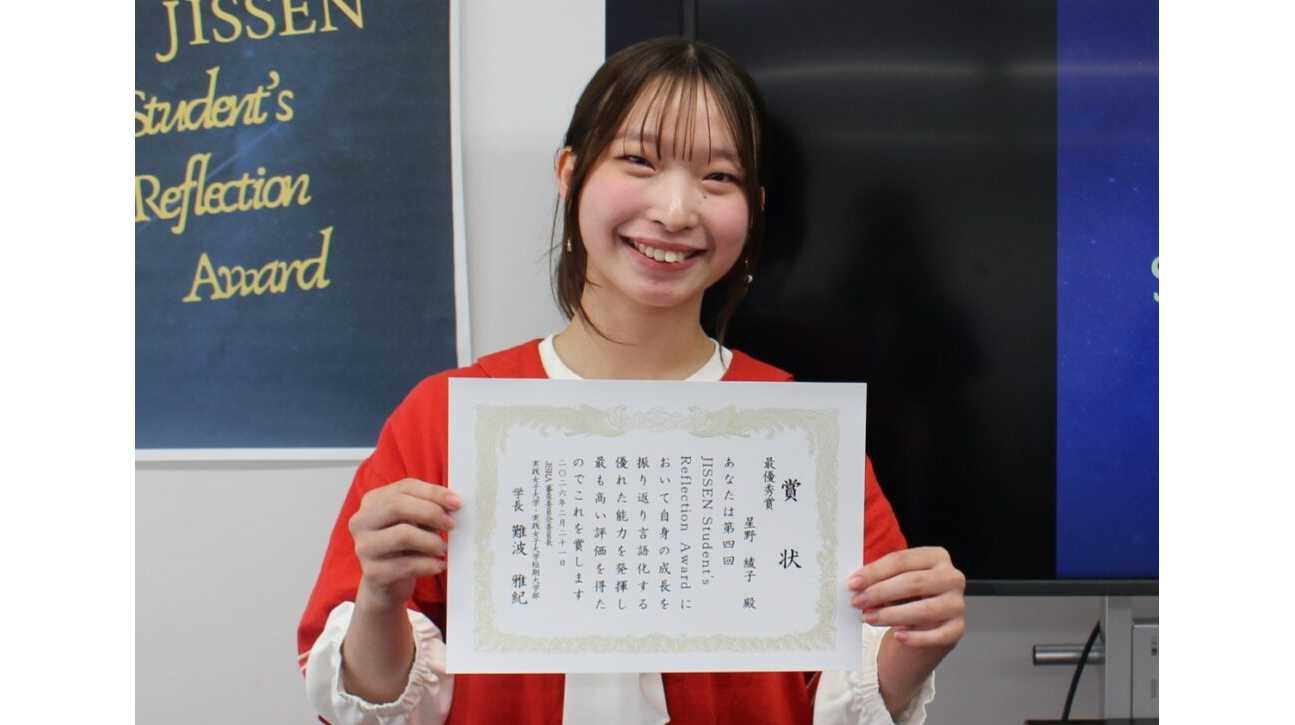 JISSEN
Student's
Reflection
Award
賞状
最優秀賞
星野 綾子 殿
あなたは第四回
JISSEN Student's
Reflection Award に
おいて自身の成長を
振り返り言語化する
優れた能力を発揮し
最も高い評価を得た
のでこれを賞します
二〇二六年二月二十一日
JSRA 審査委員会委員長
実践女子大学・実践女子大学短期大学部
学長 難波 雅紀
S